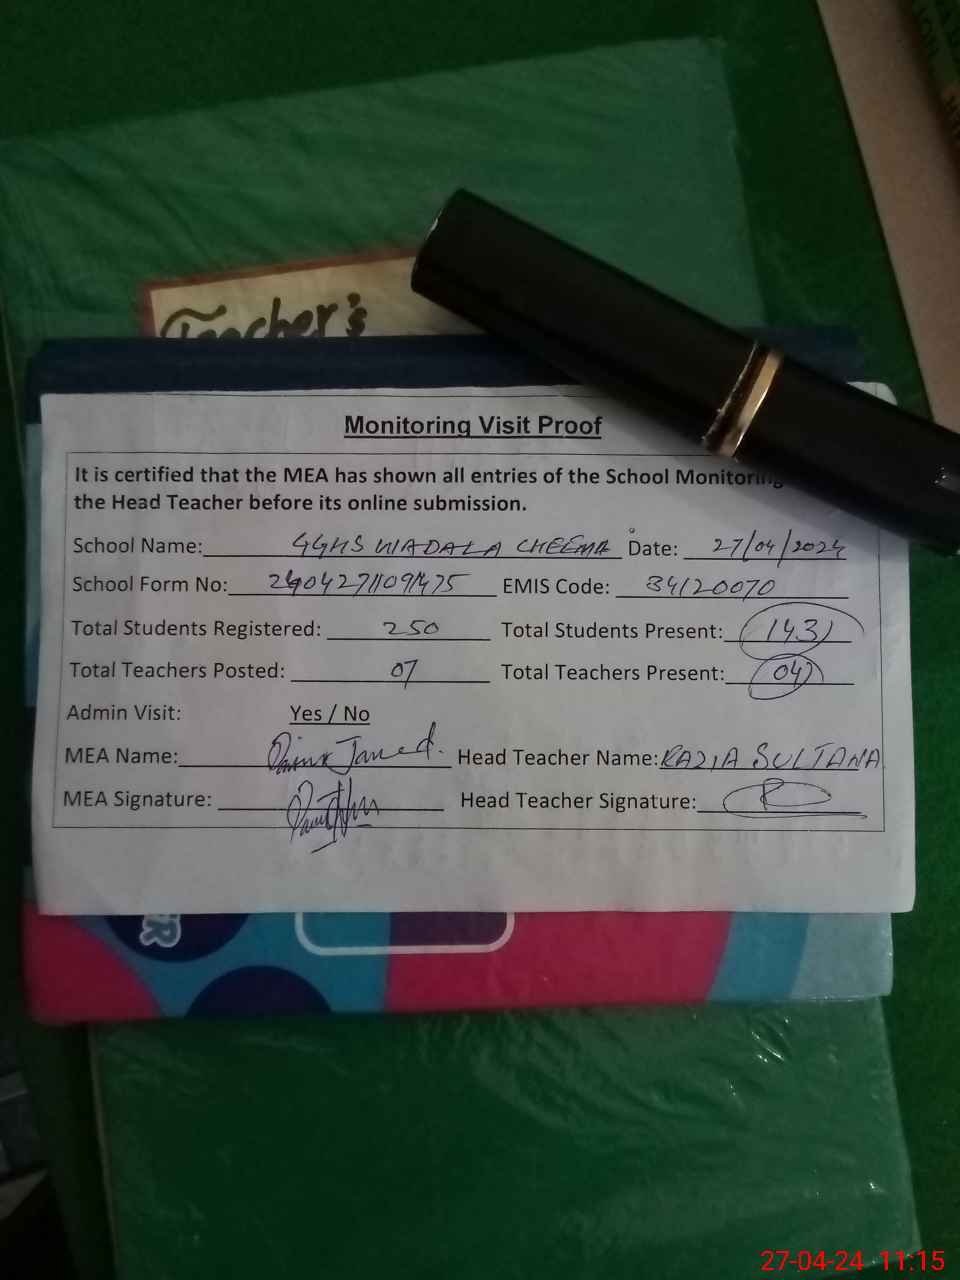 Teacher's
Monitoring Visit Proof
It is certified that the MEA has shown all entries of the School Monitoring
the Head Teacher before its online submission.
School Name: GGHS WADALA CHEEMA Date: 27/04/2024
School Form No: EMIS Code: 34120070
Total Students Registered: 250 Total Students Present: 143
Total Teachers Posted: 07 Total Teachers Present: 04
Admin Visit: Yes / No
MEA Name: Javed. Head Teacher Name: RAZIA SULTANA
MEA Signature: Head Teacher Signature: R
27-04-24 11:15